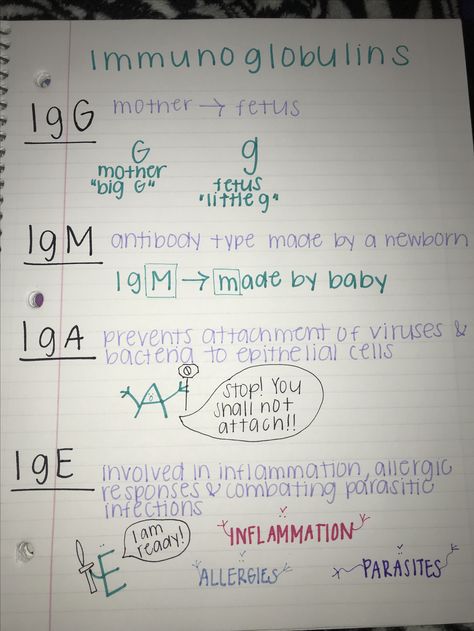 Immunoglobulins
IgG mother → fetus
G g
mother fetus
"big G" "little g"
IgM antibody type made by a newborn
IgM → made by baby
IgA prevents attachment of viruses &
bacteria to epithelial cells
A
Stop! You
shall not
attach!!
IgE involved in inflammation, allergic
responses & combating parasitic
infections
I am
ready!
E
INFLAMMATION
ALLERGIES
PARASITES